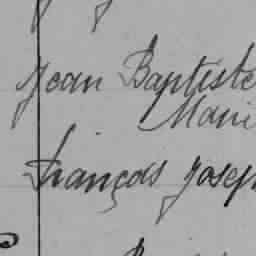 Jean Baptiste
Mari
François Josep